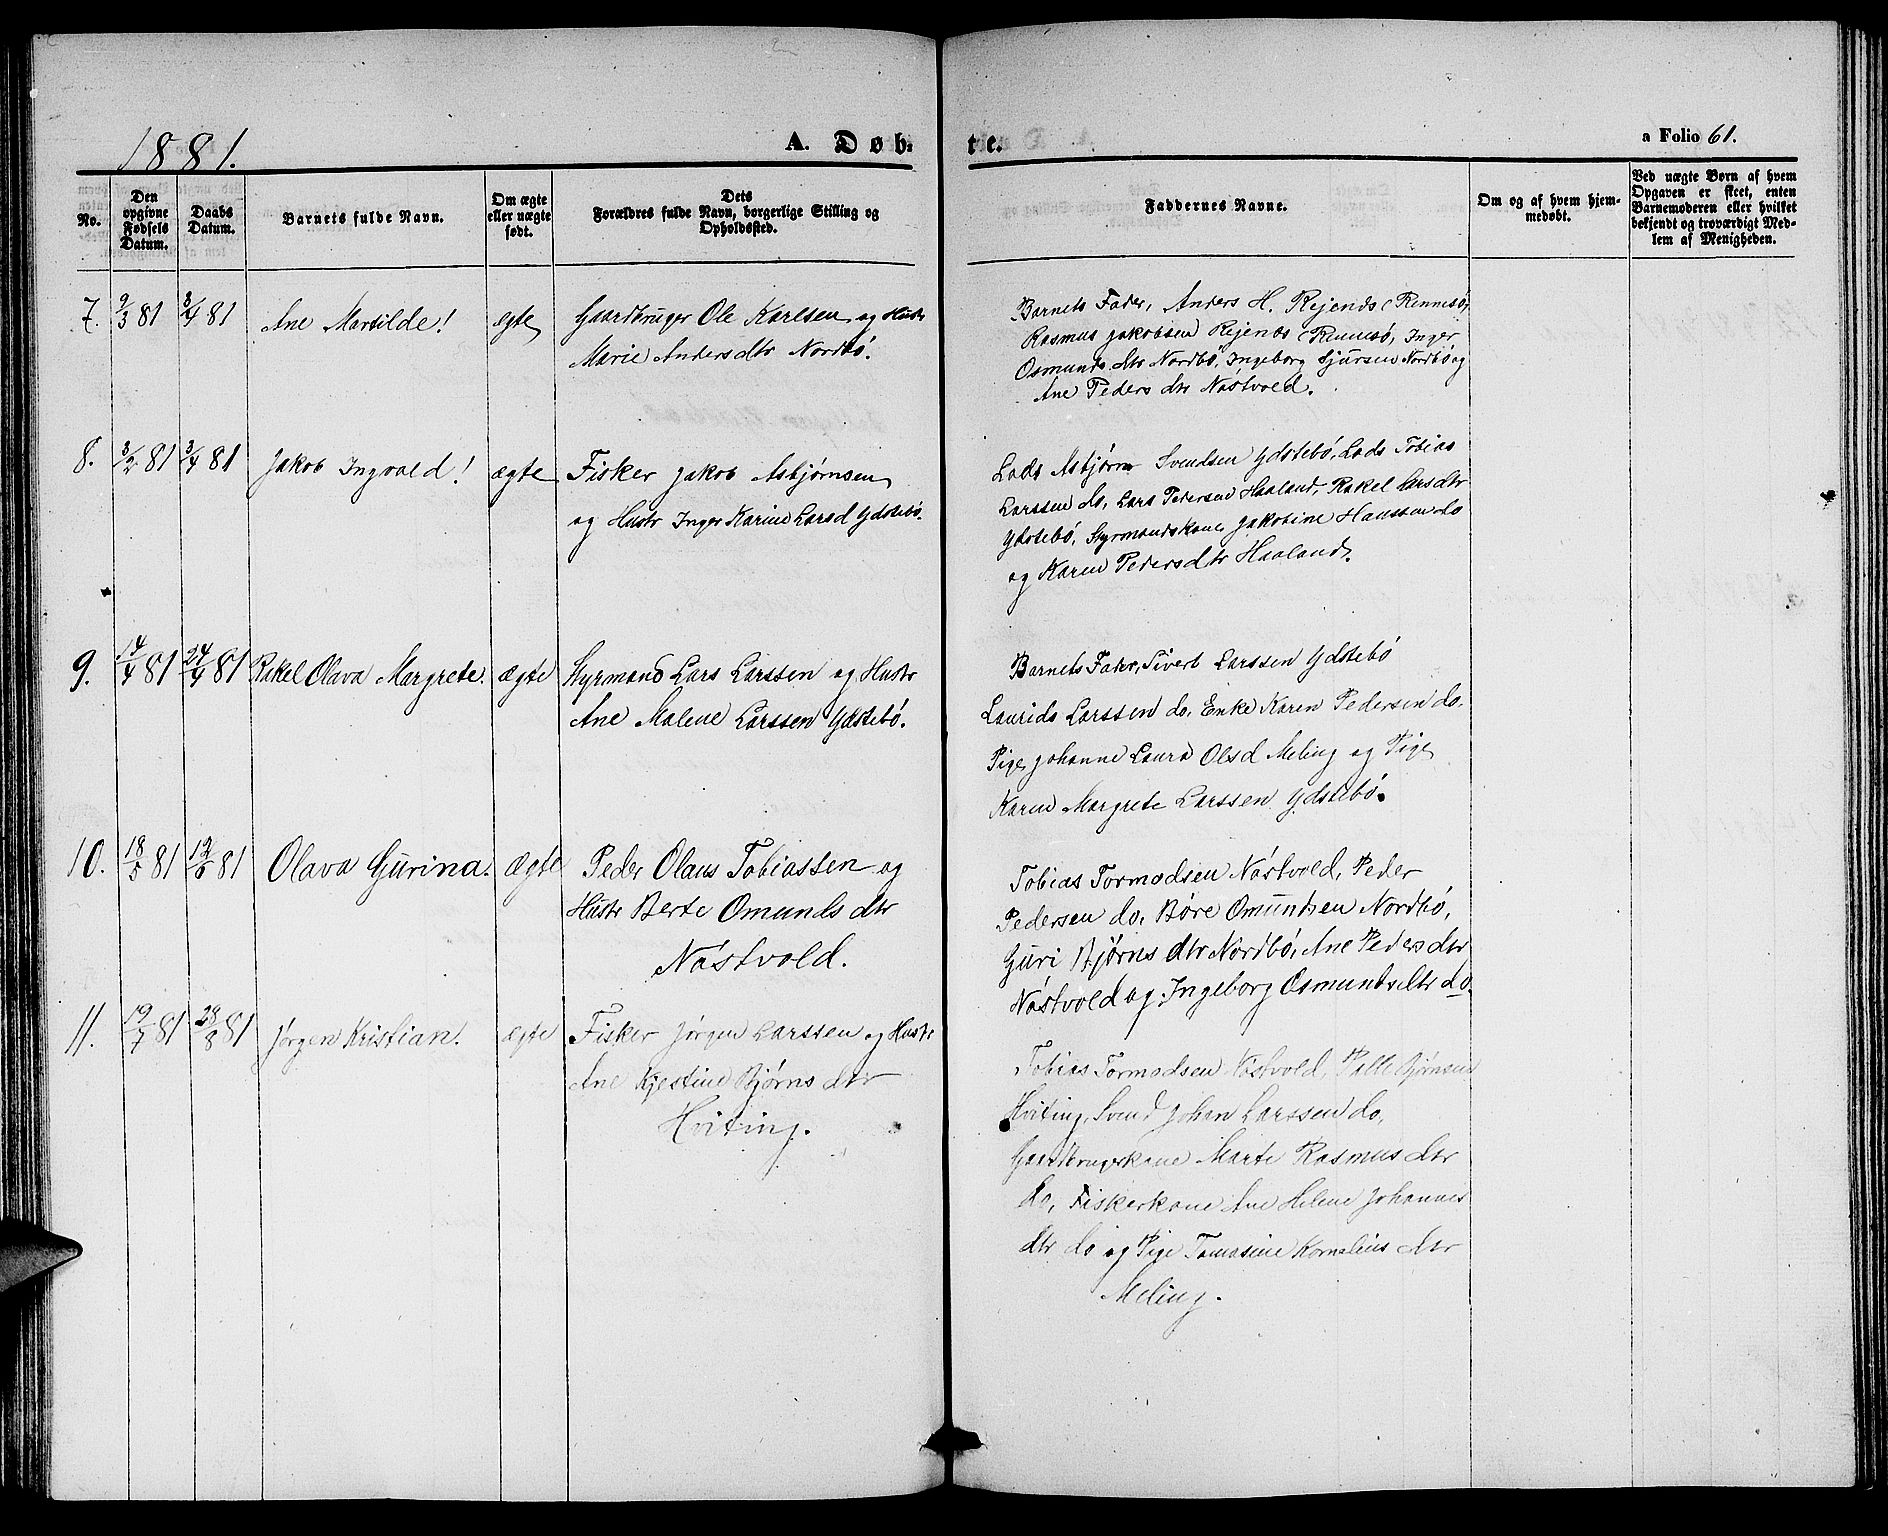 1881. A. Døb- te. a Folio 61.
No. Den opgivne Fødsels Datum. Daabs Datum. Barnets fulde Navn. Om ægte eller uægte født. Dets Forældres fulde Navn, borgerlige Stilling og Opholdssted. Faddernes Navne. Om og af hvem hjemmedøbt. Ved uægte Børn af hvem Opgaven er skeet, enten Barnemoderen eller hvilket bekjendt og troværdigt Medlem af Menigheden.
7. 9/3 81 3/4 81 Ane Martilde! ægte Gaardbruger Ole Karlsen og Hustr
Marie Andersdtr Nordbó.
Barnets Fader, Anders H. Rejends (Rennesø,
Rasmus Jakobsen Rejends (Rennesø, Inger
Osmunds dtr Nordbó, Ingeborg Sjursen Nordbó og
Ane Peders dtr Nóstvold.
8. 3/2 81 3/4 81 Jakob Ingvald! ægte Fisker Jakob Asbjørnsen
og Hustr Inger Karine Larsd Ydstebó.
Lods Asbjørn Svendsen Ydstebó, Lods Tobias
Larssen do, Lars Pedersen Haaland, Rakel Larsdtr
Ydstebó, Styrmandskone Jakobine Hanssen do
og Karen Pedersdtr Haaland.
9. 14/4 81 24/4 81 Rakel Olava Margrete. ægte Styrmand Lars Larssen og Hustr
Ane Malene Larssen Ydstebó.
Barnets Fader, Sivert Larssen Ydstebó
Laurids Larssen do, Enke Karen Pedersen do.
Pige Johanne Laura Olsd Meling og Pige
Karen Margrete Larssen Ydstebó.
10. 18/5 81 19/6 81 Olava Gurina. ægte Peder Olaus Tobiassen og
Hustr Berte Omunds dtr
Nóstvold.
Tobias Tormodsen Nóstvold, Peder
Pedersen do, Børe Omundsen Nordbó,
Guri Bjørns dtr Nordbó, Ane Pedersdtr
Nóstvold og Ingeborg Osmundsdtr do.
11. 19/7 81 28/8 81 Jørgen Kristian. ægte Fisker Jørgen Larssen og Hustr
Ane Kjestine Bjørns dtr
Hviting.
Tobias Tormodsen Nóstvold, Palle Bjørnsen
Hviting, Svend Johan Larssen do,
Gaardbrugerkone Marte Rasmus dtr
do, Fiskerkone Ane Helene Johannes
dtr do og Pige Tomasine Kornelius dtr
Meling.